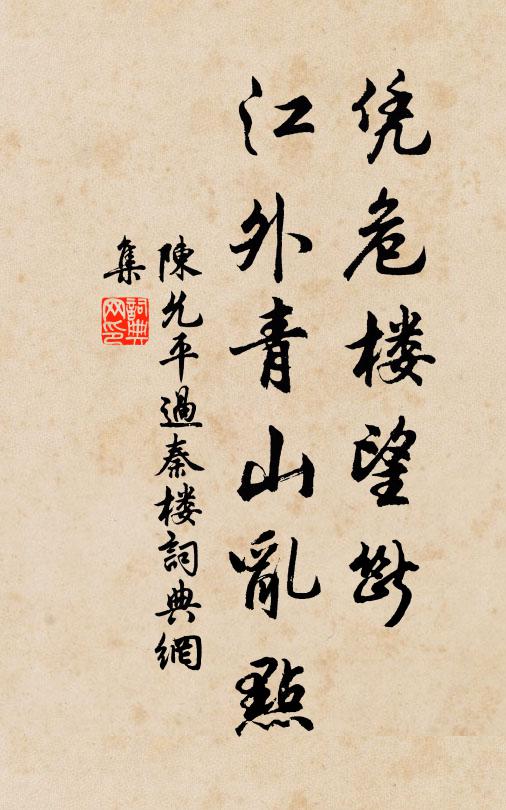 凭危楼望断
江外青山亂點
陳允平過秦楼詞典網
集
詞典
网印